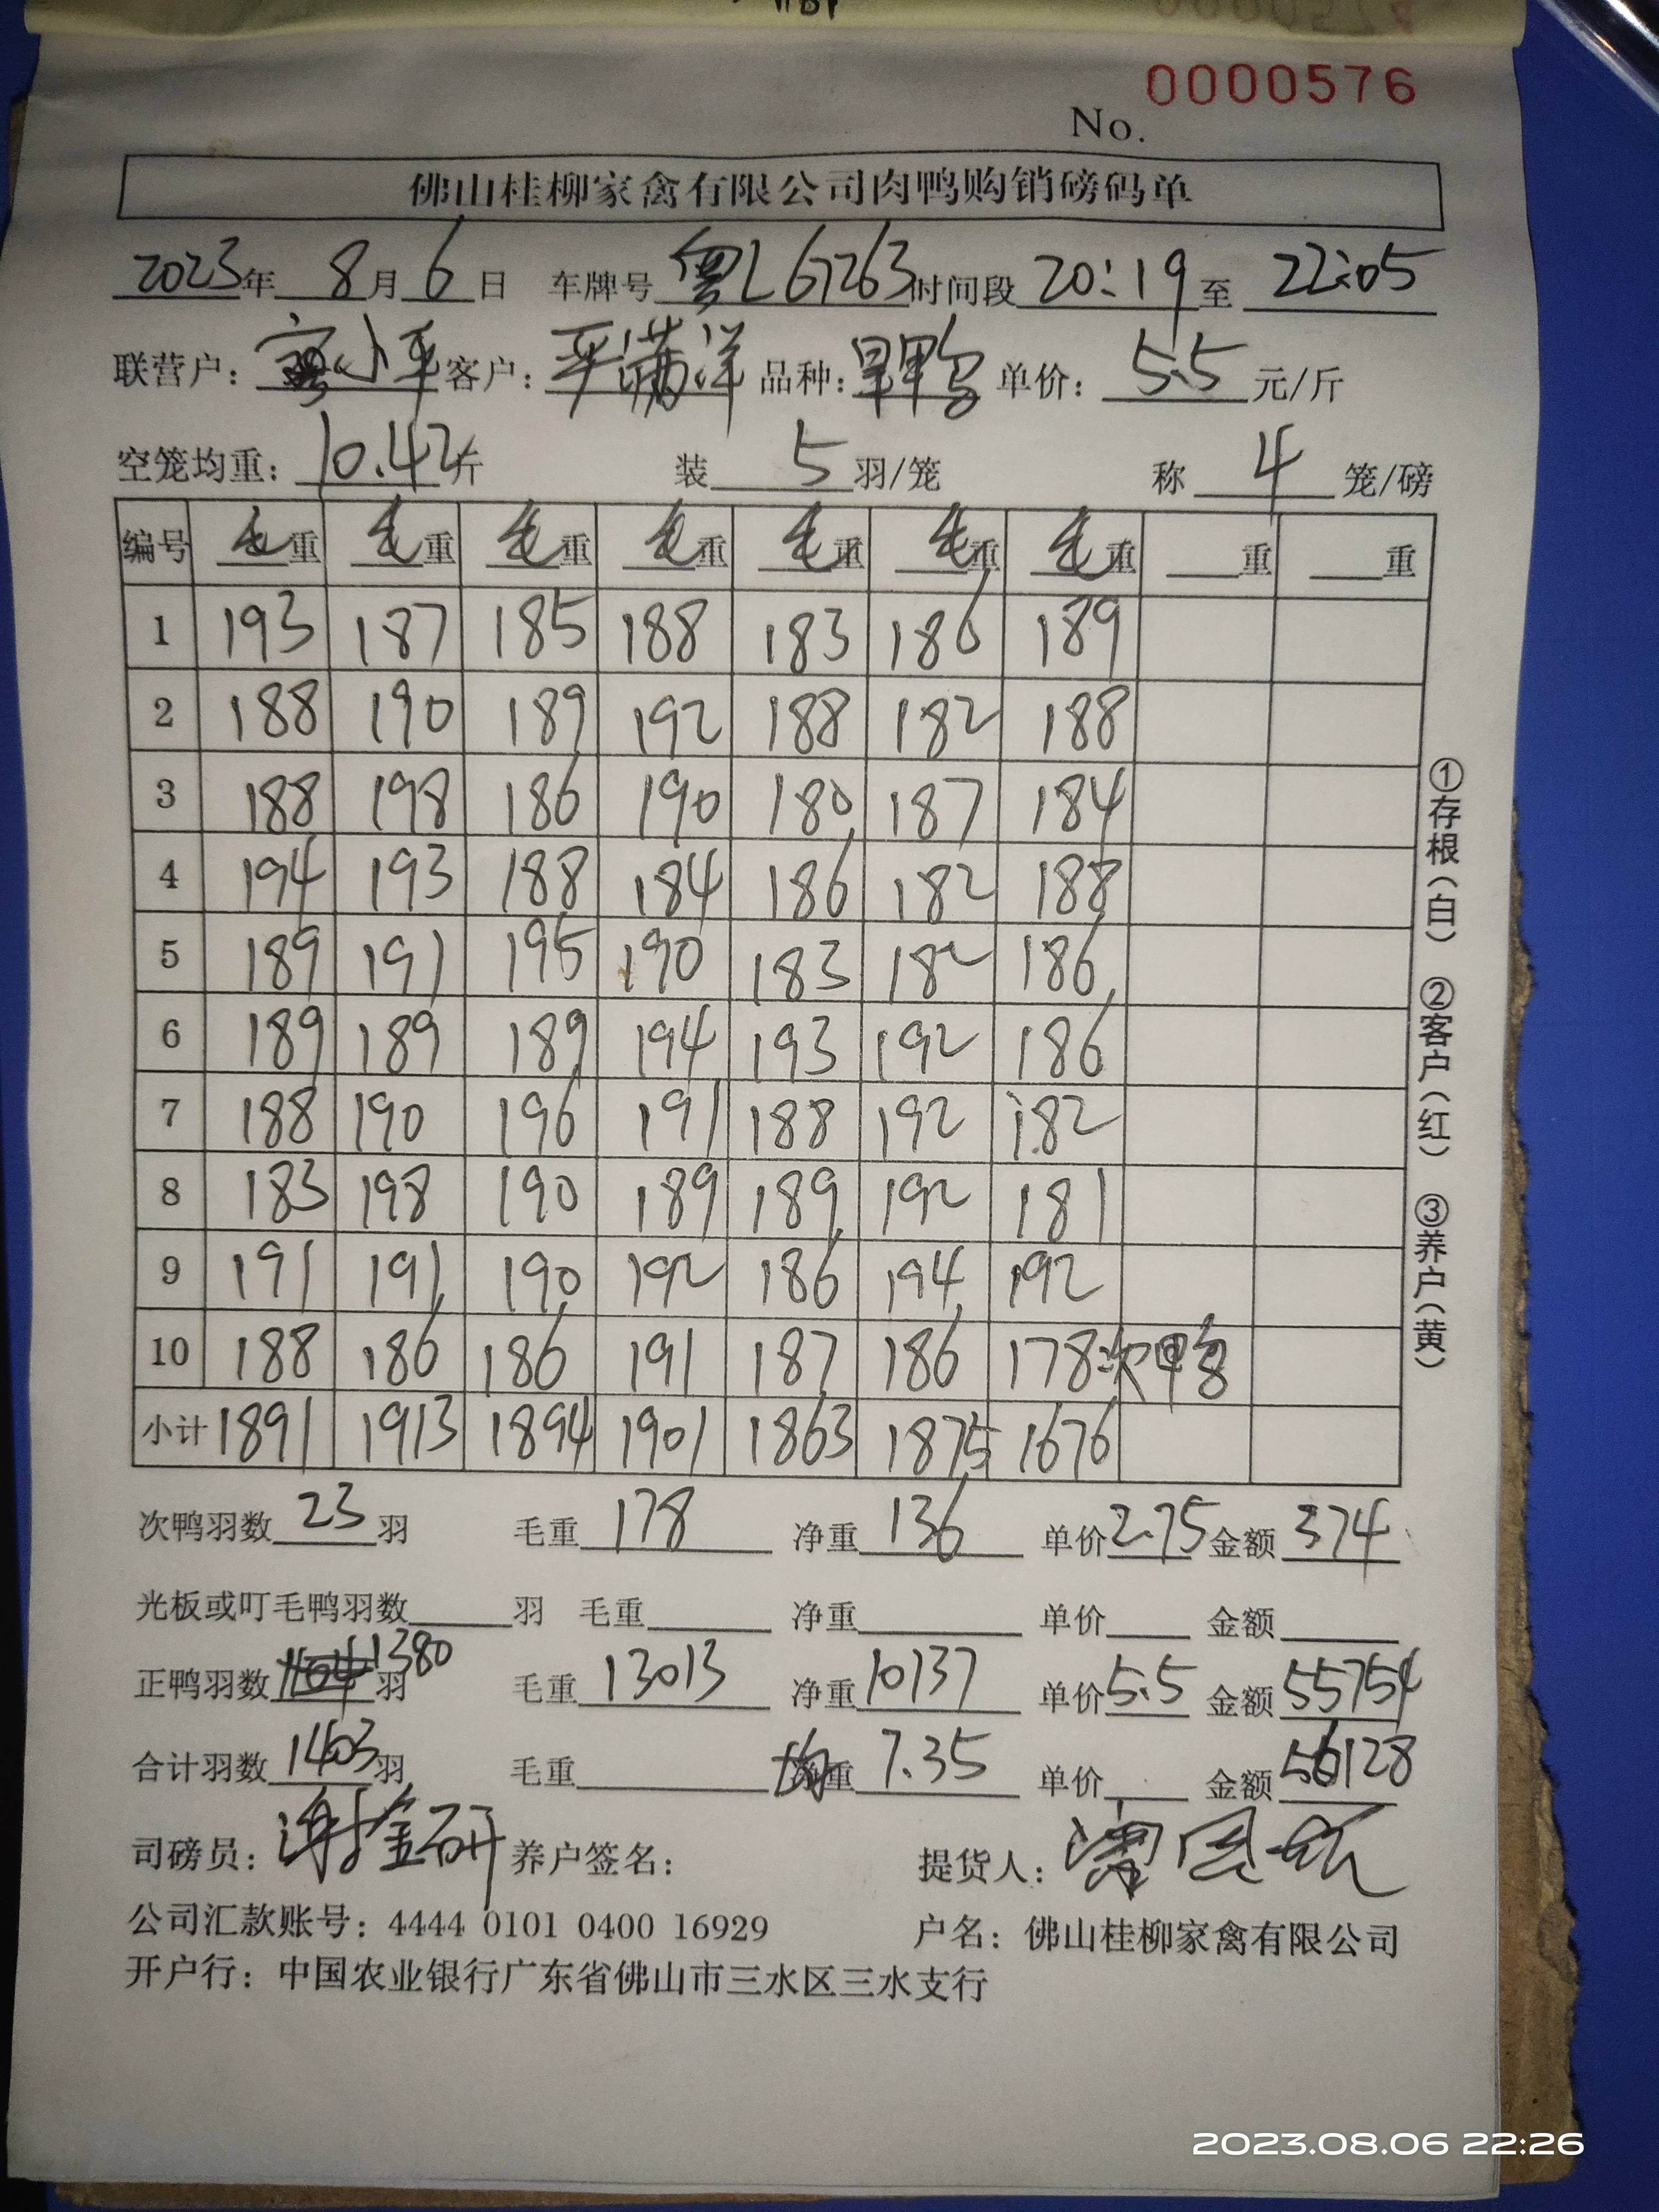 0000576
No.
佛山桂柳家禽有限公司肉鸭购销磅码单
2023年 8月6日 车牌号 粤L67263 时间段 20:19 至 22:05
联营户: 小平 客户: 严满洋 品种: 旱鸭 单价: 5.5 元/斤
空笼均重: 10.42斤 装 5 羽/笼 称 4 笼/磅
编号 毛重 毛重 毛重 毛重 毛重 毛重 毛重 重 重
1 193 187 185 188 183 186 189
2 188 190 189 192 188 182 188
3 188 198 186 190 180 187 184
4 194 193 188 184 186 182 188
5 189 191 195 190 183 182 186
6 189 189 189 194 193 192 186
7 188 190 196 191 188 192 182
8 183 198 190 189 189 192 181
9 191 191 190 192 186 194 192
10 188 186 186 191 187 186 178 次鸭
小计 1891 1913 1894 1901 1863 1875 1676
次鸭羽数 23 羽 毛重 178 净重 136 单价 2.75 金额 374
光板或叮毛鸭羽数 羽 毛重 净重 单价 金额
正鸭羽数 1380 羽 毛重 13013 净重 10137 单价 5.5 金额 55754
合计羽数 1403 羽 毛重 均重 7.35 单价 金额 56128
司磅员: 谢金研 养户签名: 提货人:
公司汇款账号: 4444 0101 0400 16929 户名: 佛山桂柳家禽有限公司
开户行: 中国农业银行广东省佛山市三水区三水支行
①存根(白) ②客户(红) ③养户(黄)
2023.08.06 22:26